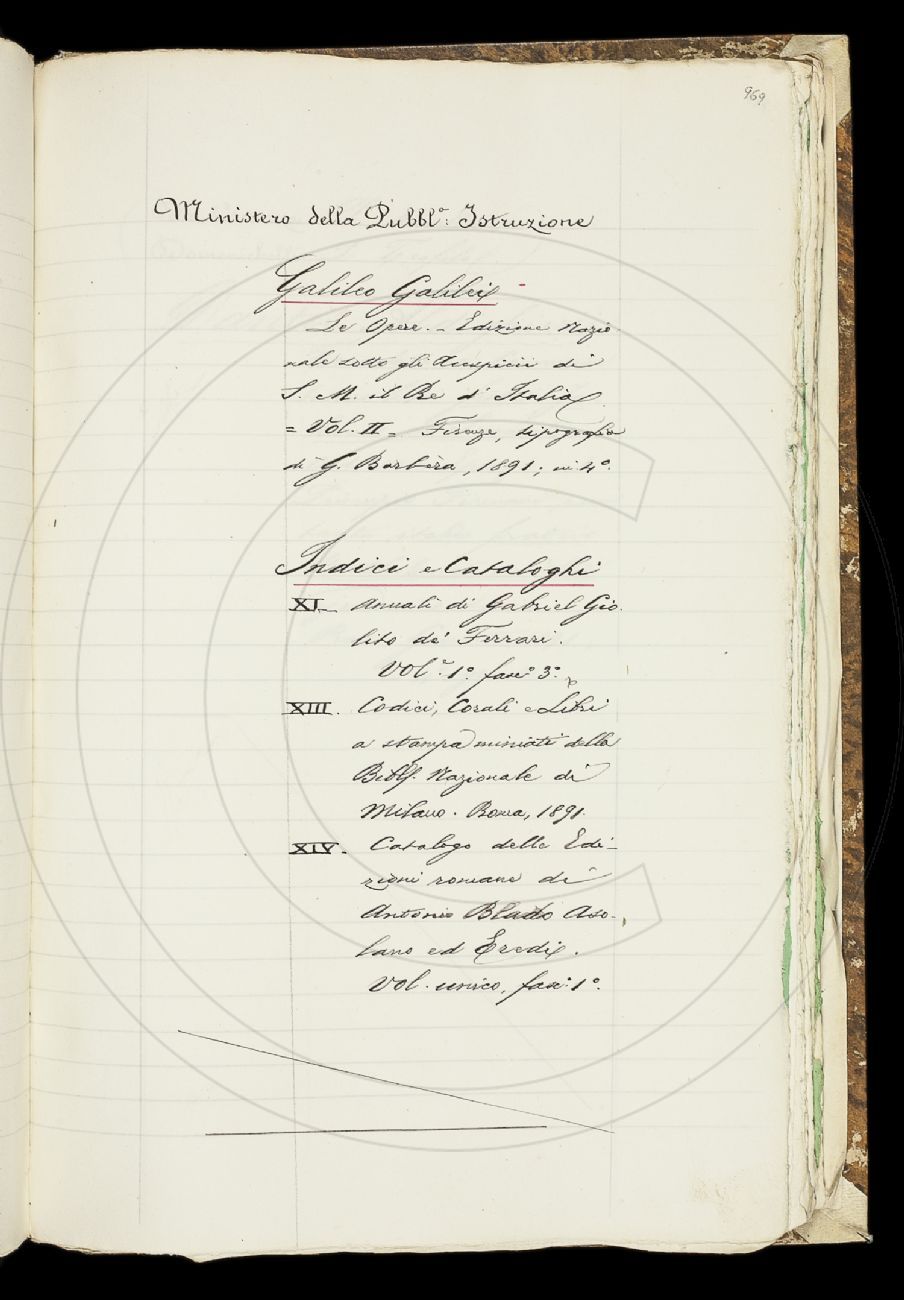 969
Ministero della Pubbl°: Istruzione
Galileo Galilei
Le Opere. - Edizione Nazio
nale sotto gli Auspicii di
S. M. il Re d' Italia.
= Vol. II = Firenze, tipografia
di G. Barbèra, 1891; in 4°.
Indici e Cataloghi
XI. Annali di Gabriel Gio.
lito de' Ferrari.
Vol.e 1° fasc° 3°.
XIII. Codici, Corali e Libri
a stampa miniati della
Bibl. Nazionale di
Milano. Roma, 1891.
XIV. Catalogo delle Edi-
zioni romane di
Antonio Blado Aso-
lano ed Eredi.
Vol. unico, fasc: 1°.